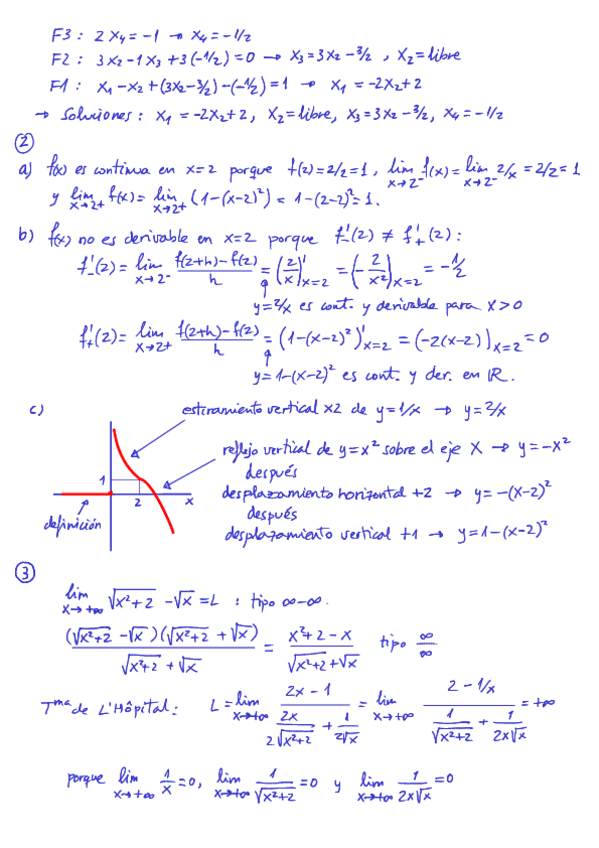 F3: 2x₄ = -1 → x₄ = -1/2
F2: 3x₂ - 1x₃ + 3(-1/2) = 0 → x₃ = 3x₂ - 3/2, x₂ = libre
F1: x₁ - x₂ + (3x₂ - 3/2) - (-1/2) = 1 → x₁ = -2x₂ + 2
→ Soluciones: x₁ = -2x₂ + 2, x₂ = libre, x₃ = 3x₂ - 3/2, x₄ = -1/2
②
a) f(x) es continua en x=2 porque f(2) = 2/2 = 1, lim x→2⁻ f(x) = lim x→2⁻ 2/x = 2/2 = 1
y lim x→2+ f(x) = lim x→2+ (1-(x-2)²) = 1-(2-2)² = 1.
b) f(x) no es derivable en x=2 porque f'₋(2) ≠ f'₊(2):
f'₋(2) = lim x→2⁻ (f(2+h)-f(2))/h = (2/x)' x=2 = (-2/x²) x=2 = -1/2
y=2/x es cont. y derivable para x>0
f'₊(2) = lim x→2+ (f(2+h)-f(2))/h = (1-(x-2)²)' x=2 = (-2(x-2)) x=2 = 0
y=1-(x-2)² es cont. y der. en ℝ.
c) estiramiento vertical x2 de y=1/x → y=2/x
reflejo vertical de y=x² sobre el eje X → y=-x²
después
desplazamiento horizontal +2 → y=-(x-2)²
después
desplazamiento vertical +1 → y=1-(x-2)²
1
2
x
definición
③
lim x→+∞ √(x²+2) - √x = L : tipo ∞-∞.
(√(x²+2) - √x)(√(x²+2) + √x) / (√(x²+2) + √x) = (x²+2-x) / (√(x²+2) + √x) tipo ∞/∞
Tᵐᵃ de L'Hôpital: L = lim x→+∞ (2x-1) / (2x/(2√(x²+2)) + 1/(2√x)) = lim x→+∞ (2-1/x) / (1/√(x²+2) + 1/(2x√x)) = +∞
porque lim x→+∞ 1/x = 0, lim x→+∞ 1/√(x²+2) = 0 y lim x→+∞ 1/(2x√x) = 0